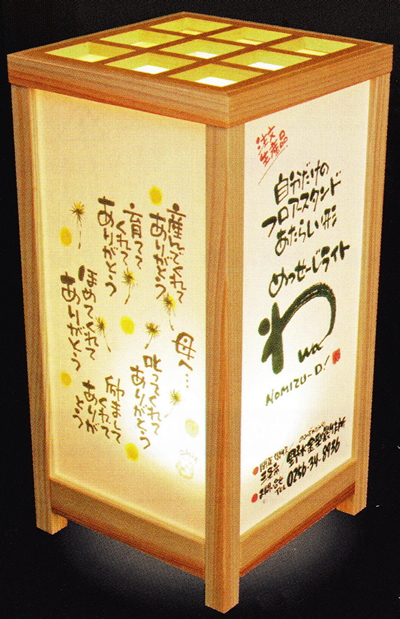 母へ…
産んでくれて
ありがとう
育てて
くれて
ありがとう
叱ってくれて
ありがとう
励まして
くれて
ありが
とう
ほめてくれて
ありがとう
注文
生産品
自分だけの
フロアースタンド
あたらしい形
めっせーじライト
わ
wa
NOMIZU-D!
TEL 0256-34-8936